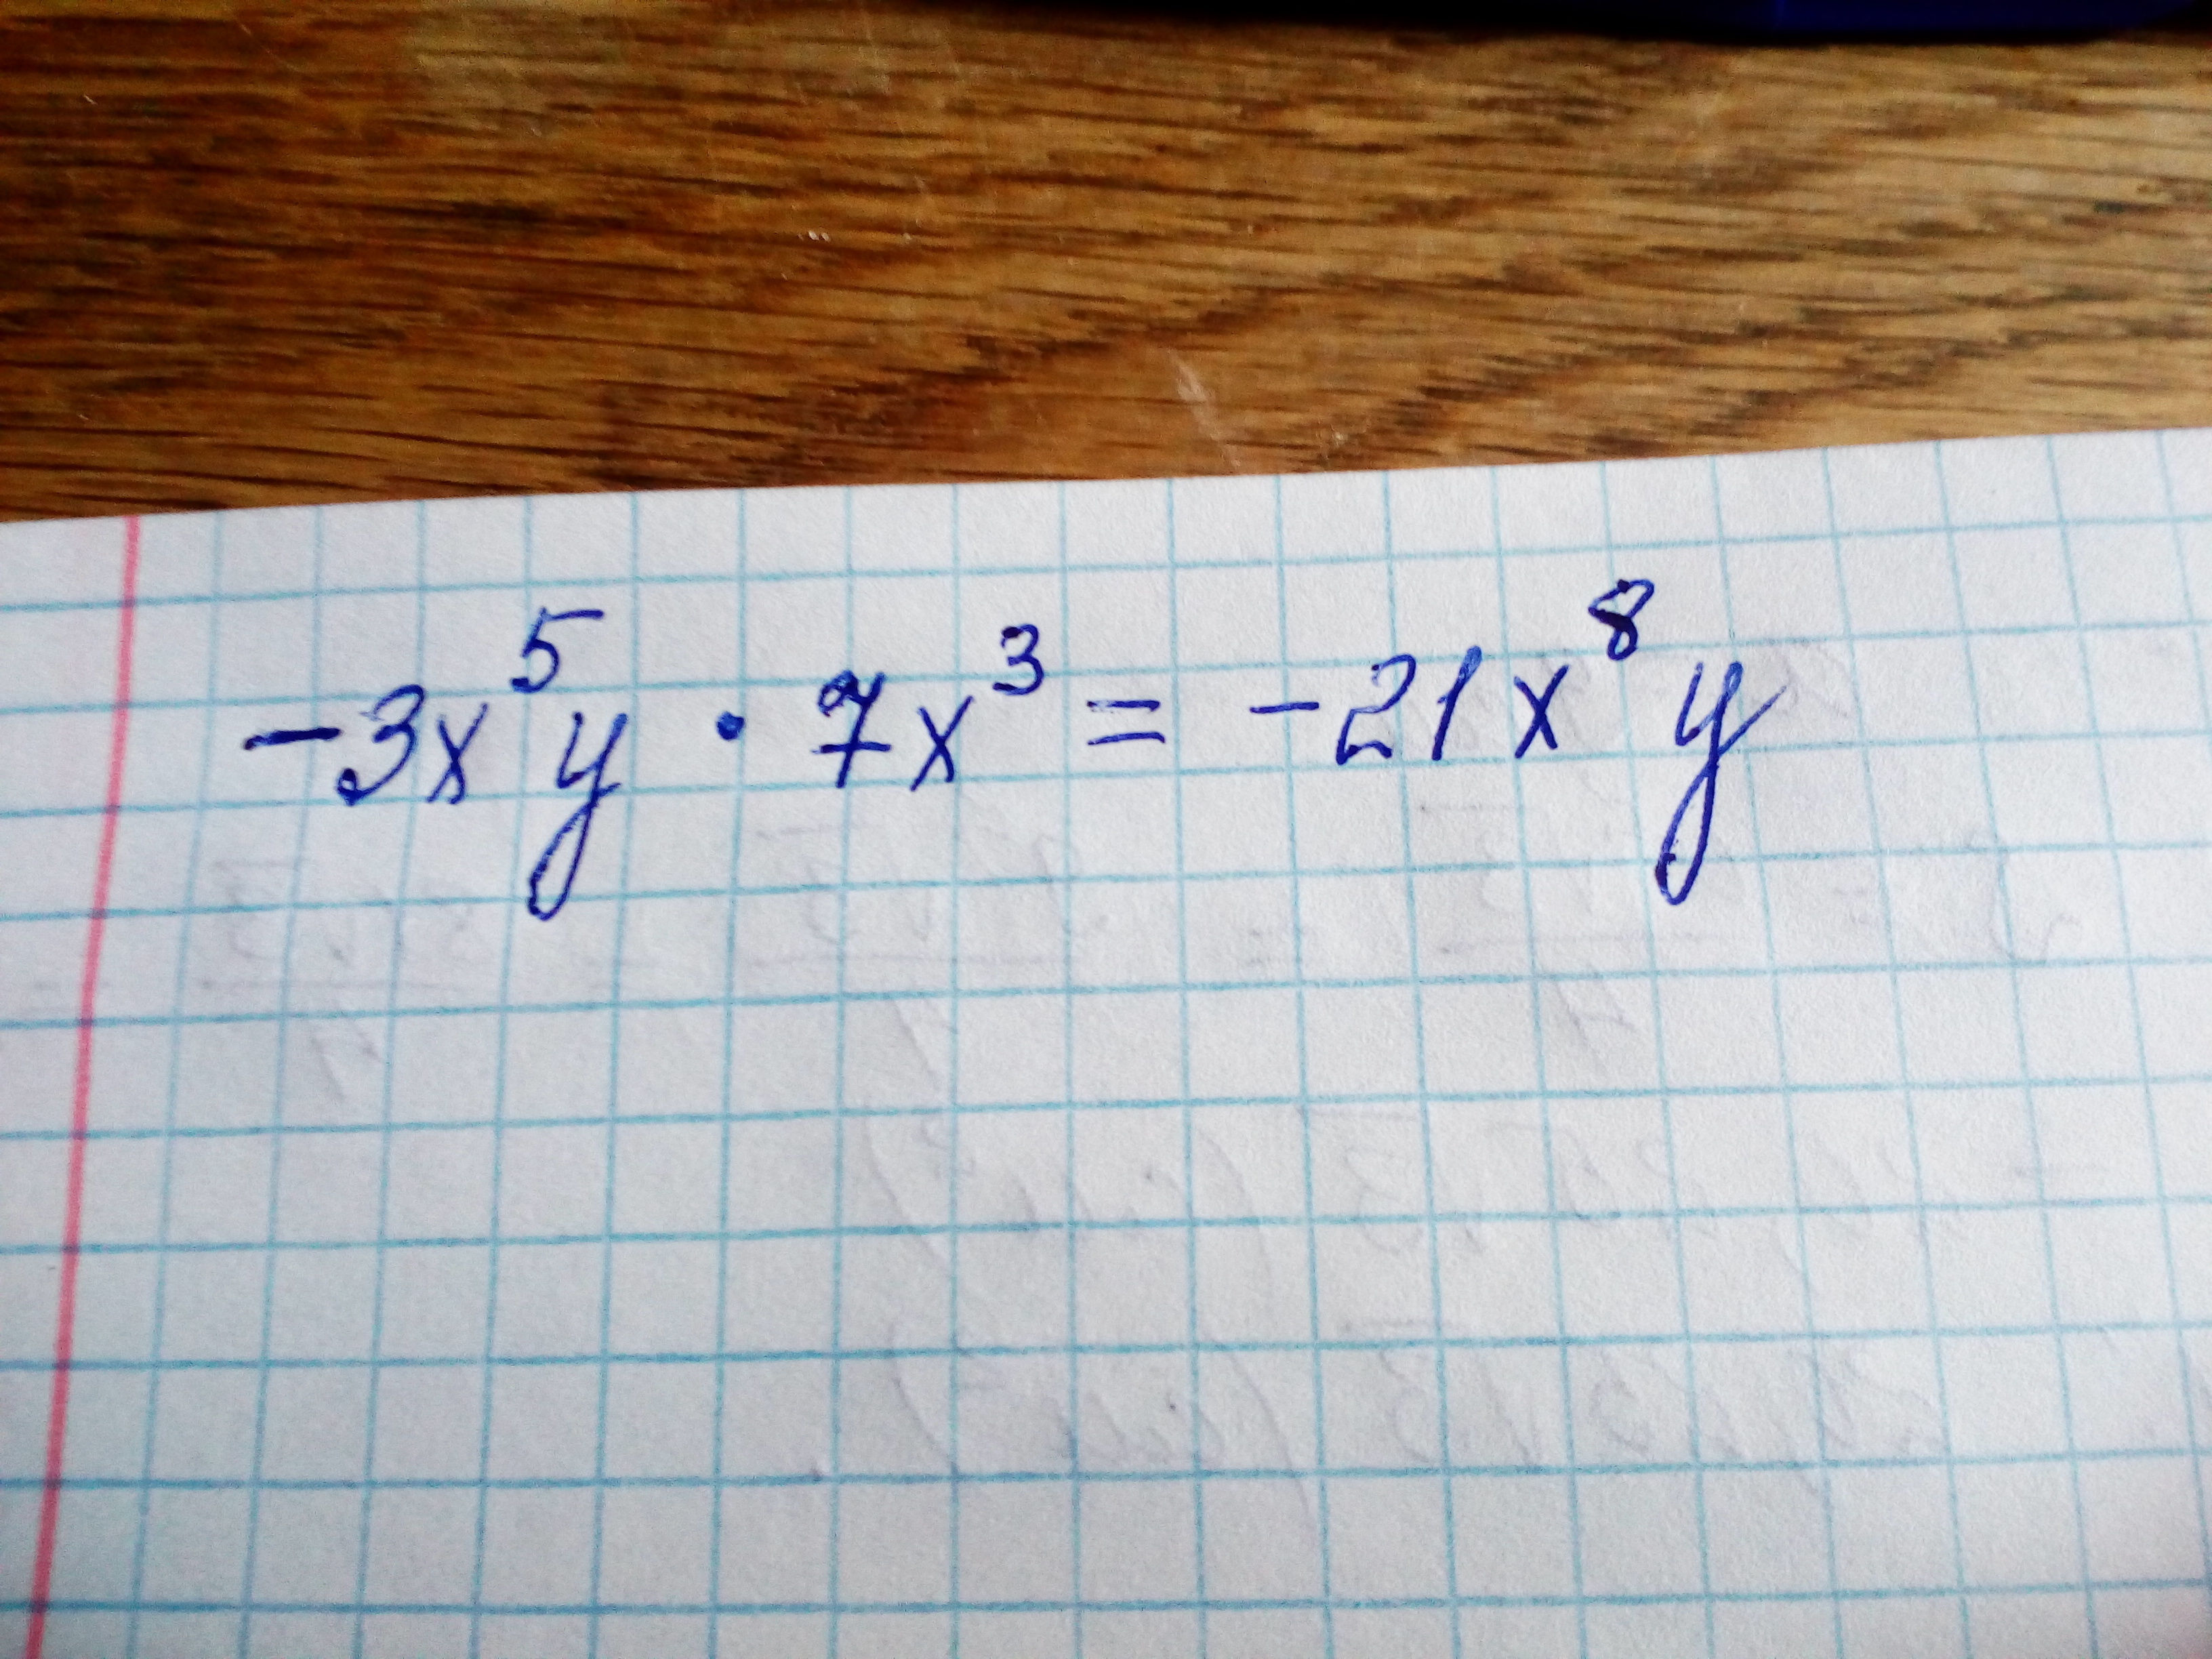 -3x⁵y · 7x³ = -21x⁸y